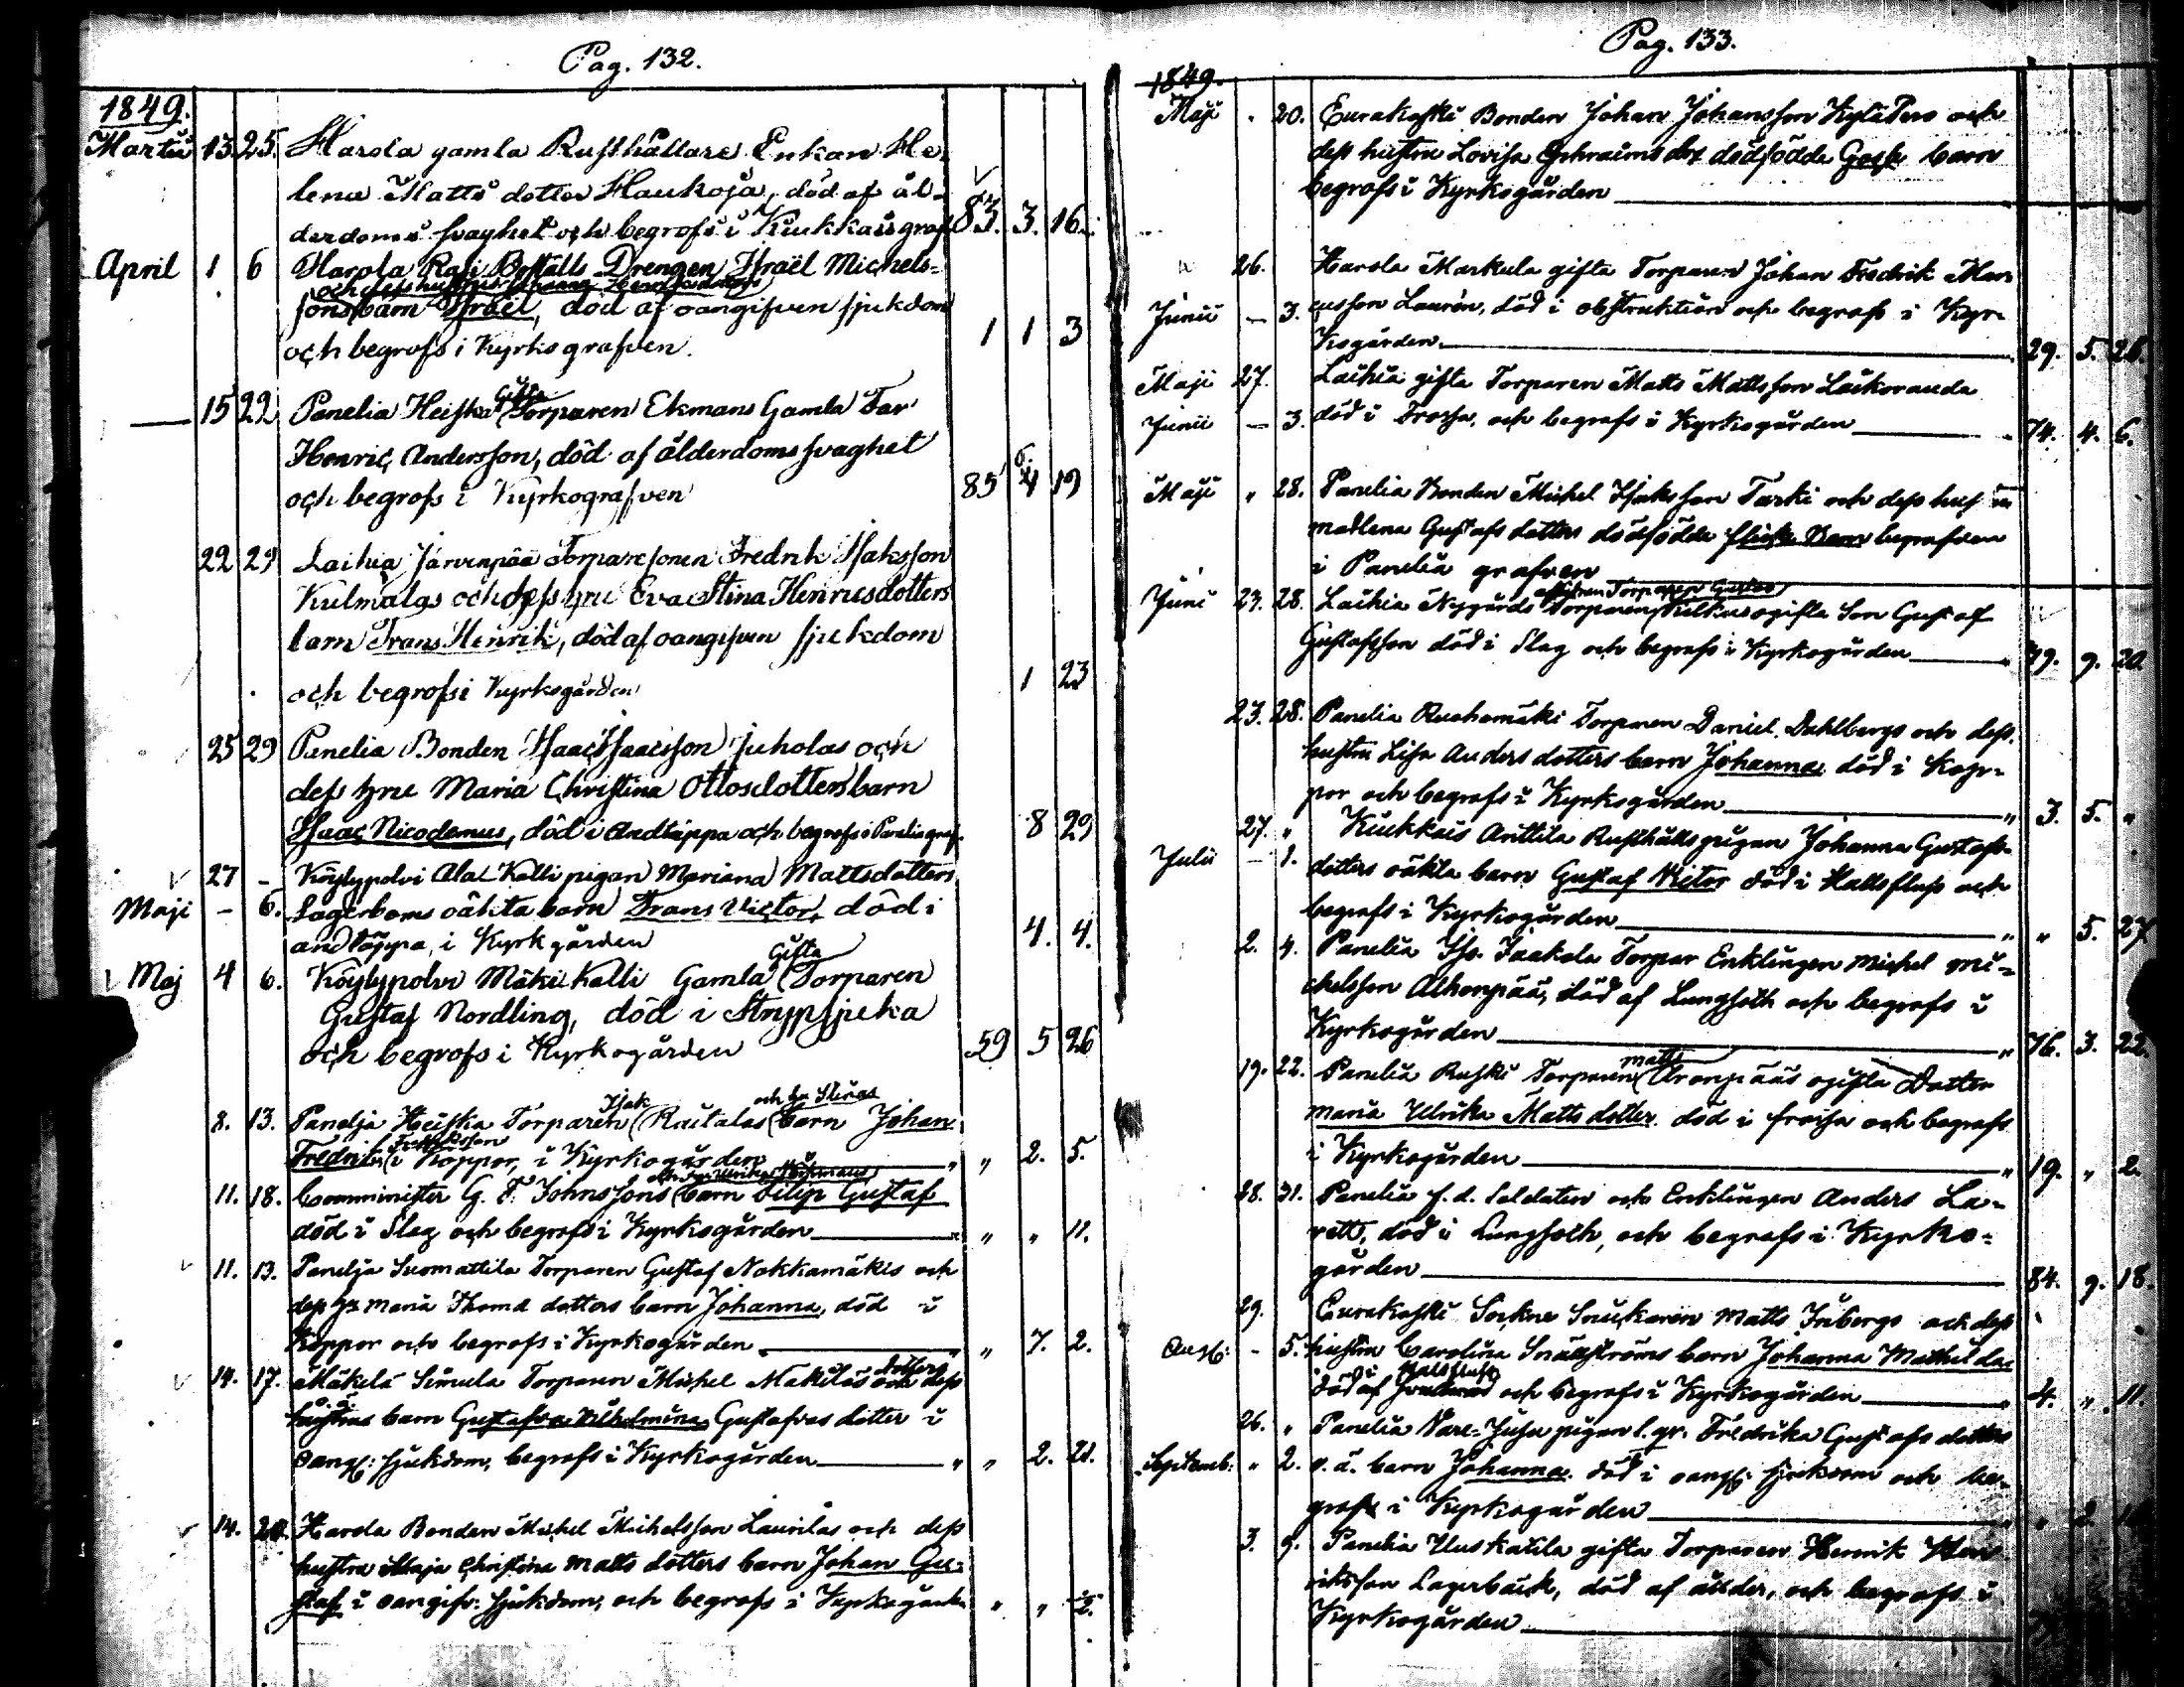 Pag. 132.
1849.
Martii 13 25. Harola gamla Rusthållare Enkan He-
lena Matts dotter Haukoja, död af ål-
derdoms svaghet och begrofs i Kiukkais graf 83. 3. 16.
April 1 6 Harola Rasi Boställs Drengen Israël Michels-
och dess hustrus Johanna Henriksdotters
sons barn Israël, död af oangifven sjukdom
och begrofs i Kyrks grafven. 1 1 3
— 15 22 Panelia Heiska Gifta Torparen Ekmans Gamla Far
Henric Andersson, död af ålderdoms svaghet
och begrofs i Kyrkografven 85 4 19
22 29 Laihia Järvenpää Torparesonen Fredrik Isaksson
Kulmalas och dess hru Eva Stina Henricsdotters
barn Frans Henrik, död af oangifven sjukdom
och begrofs i Kyrkogården 1 23
25 29 Panelia Bonden Isaac Isaacsson Juholas och
dess hru Maria Christina Ottosdotters barn
Isaac Nicodemus, död i Andtäppa och begrofs i Panelia graf. 8 29
27 - Köylypolvi Ala Kalli pigan Mariana Mattsdotters
Maji - 6. Lagerboms oäkta barn Frans Victor, död i
andtäppa, i Kyrkgården 4. 4.
Maj 4 6. Köylypolvi Mäki Kalli Gamla Gifta Torparen
Gustaf Nordling, död i Strypsjuka
och begrofs i Kyrkogården 59 5 26
8. 13. Panelja Heiska Torparen Isak Raitalas och hu Stinas barn Johan
Fredrik i Koppor, i Kyrkogården " " 2. 5.
11. 18. Comminister G. F. Johnssons barn Filip Gustaf
död i Slag och begrofs i Kyrkogården " " 11.
11. 13. Panelja Suomattila Torparen Gustaf Nokkamäkis och
dess hu Maria Thomæ dotters barn Johanna, död i
Koppor och begrofs i Kyrkogården " " 7. 2.
14. 17. Mäkelä Simula Torparen Michel Mäkiläs dotters
o. ä. barn Gustafva Vilhelmina Gustafvas dotter i
oangf: sjukdom, begrofs i Kyrkogården " " 2. 21.
14. 20. Harola Bonden Michel Michelsson Laurilas och dess
hustru Maja Christina Matts dotters barn Johan Gu-
staf i oangifv: sjukdom, och begrofs i Kyrkogården " "
Pag. 133.
1849.
Maji " 20. Eurakoski Bonden Johan Johansson Kylä Pero och
dess hustru Lovisa Ephraims dotr dödfödde Gosse barn
begrofs i Kyrkogården
26. Harola Markula gifta Torparen Johan Fredrik Mar-
Junii — 3. cusson Laurén, död i obstruktion och begrofs i Kyr-
kogården. 29. 5. 26.
Maji 27. Laihia gifta Torparen Matts Mattsson Laikoranda
Junii — 3. död i Frossa, och begrofs i Kyrkogården 74. 4. 6.
Maji " 28. Panelia Bonden Michel Isaksson Turki och dess
Madlena Gustafs dotters dödfödde flicke Barn begrafven
i Panelia grafven
Juni 23. 28. Laihia Nygårds Torparen ogifta Son Gustaf
Gustafsson död i Slag och begrofs i Kyrkogården 49. 9. 20.
23. 28. Panelia Ruohomäki Torparen Daniel Dahlbergs och dess
hustru Lisa Anders dotters barn Johanna död i Kop-
por och begrofs i Kyrkogården " 3. 5. "
27. " Kiukkais Anttila Rusthålls pigan Johanna Gustafs-
Julii — 1. dotters oäkta barn Gustaf Victor död i Halsfluss och
begrofs i Kyrkogården " " 5. 27
2. 4. Panelia Iso Jaakola Torpar Enklingen Michel Mi-
chelsson Alhonpää, död af Lungsoth och begrofs i
Kyrkogården " 76. 3. 22.
19. 22. Panelia Ruski Torparen Matts Aronpääs ogifta Dotter
Maria Ulrika Matts dotter död i frossa och begrofs
i Kyrkogården " 19. " 2.
28. 31. Panelia f. d. Soldaten och Enklingen Anders La-
rett, död i Lungsoth, och begrofs i Kyrko-
gården 84. 9. 18.
29. Eurakoski Sockne Snickaren Matts Inbergs och dess
Aug: - 5. hustru Carolina Snällströms barn Johanna Mathilda
död i Halsfluss och begrofs i Kyrkogården " 4. " 11.
26. " Panelia Vare-Jusu pigan l. gr. Fredrika Gustafs dotters
Septemb: " 2. o. ä. barn Johanna död i oangf: sjukdom och be-
grofs i Kyrkogården
3. 9. Panelia Uuskatila gifta Torparen Henrik Hen-
riksson Lagerbäck, död af ålder, och begrofs i
Kyrkogården